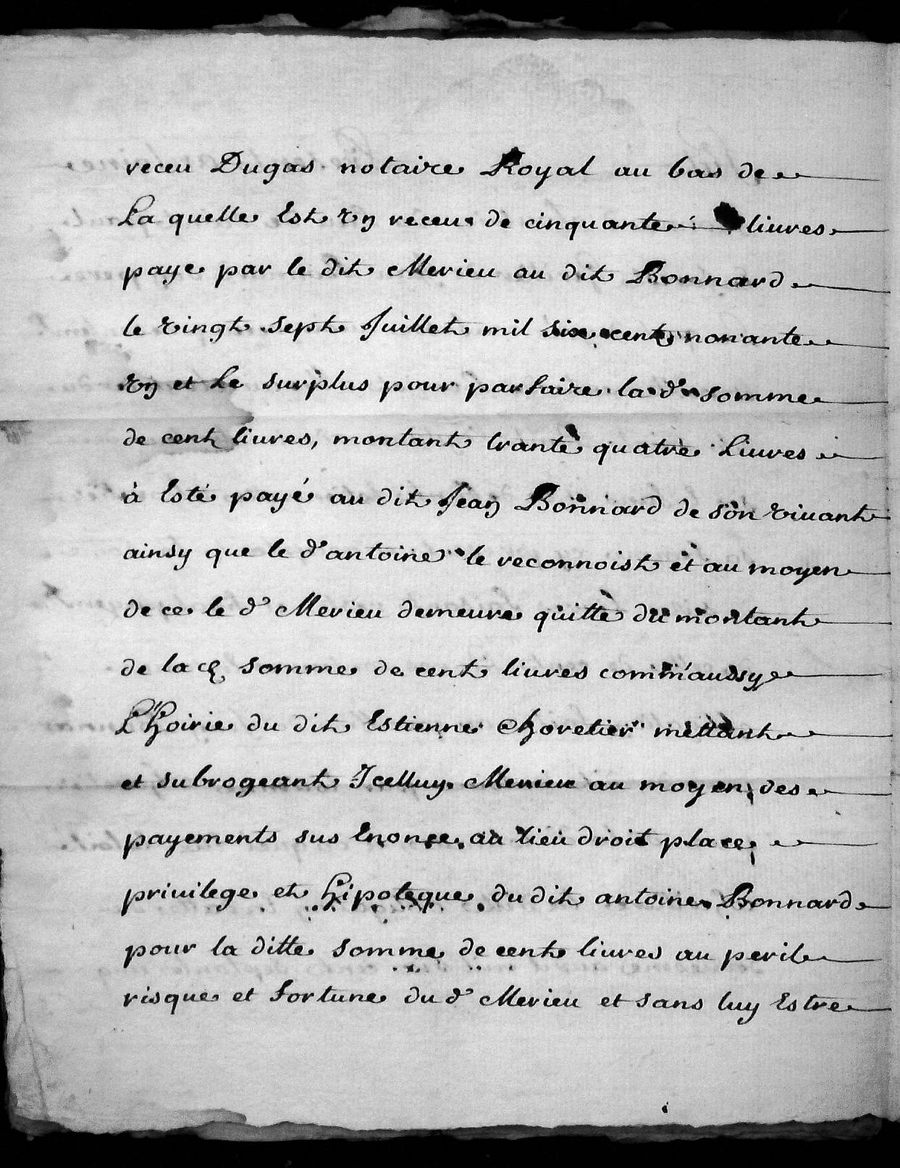 receu Dugas notaire Royal au bas de
La quelle Est un receu de cinquante livres
paye par le dit Merieu au dit Bonnard
le vingt sept Juillet mil six cent nonante
un et Le surplus pour parfaire la d^e somme
de cent livres, montant trante quatre Livres
à Esté payé au dit Jean Bonnard de son vivant
ainsy que le d^t antoine le reconnoist et au moyen
de ce le d^t Merieu demeure quitte du montant
de la d^e somme de cent livres comm'aussy
L'hoirie du dit Estienne Choretier mettant
et subrogeant Icelluy Merieu au moyen des
payements sus Enonce au lieu droit place
privilege et hipoteque du dit antoine Bonnard
pour la ditte somme de cent livres au peril
risque et fortune du d^t Merieu et sans luy Estre